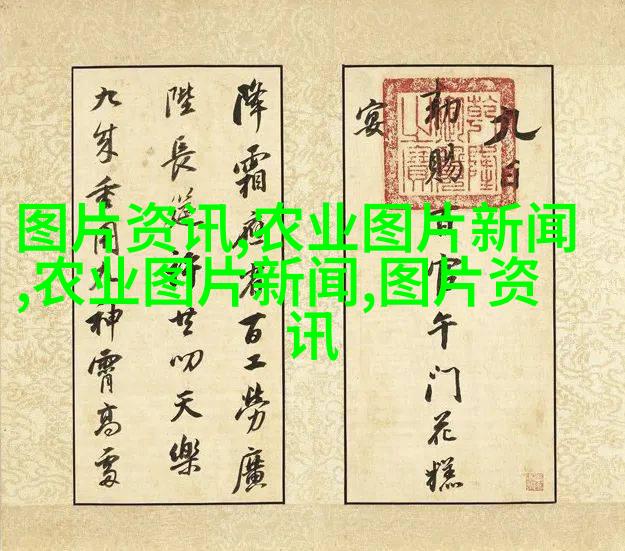 图片资讯,农业图片新闻
,农业图片新闻,图片资
讯
九日
勅賜百官午門花糕
宴
降霜應百工勞廣
陛長筵許共叨天樂
九成重神霄高